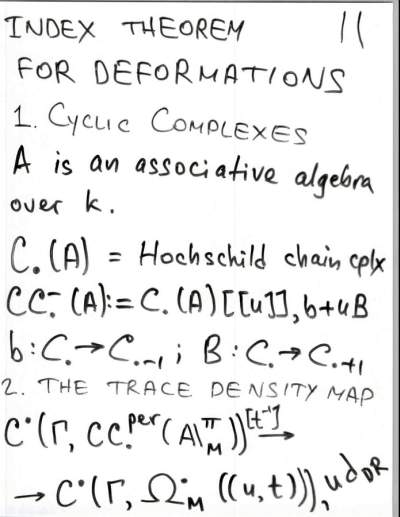 INDEX THEOREM 11
FOR DEFORMATIONS
1. CYCLIC COMPLEXES
A is an associative algebra
over k.
C.(A) = Hochschild chain cplx
CC.⁻(A):= C.(A)[[u]], b+uB
b: C.→C.₋₁; B: C.→C.₊₁
2. THE TRACE DENSITY MAP
C˙(Γ, CC.ᵖᵉʳ(A|^π_M))[t⁻¹] →
→ C˙(Γ, Ω˙_M((u,t))), ud_DR